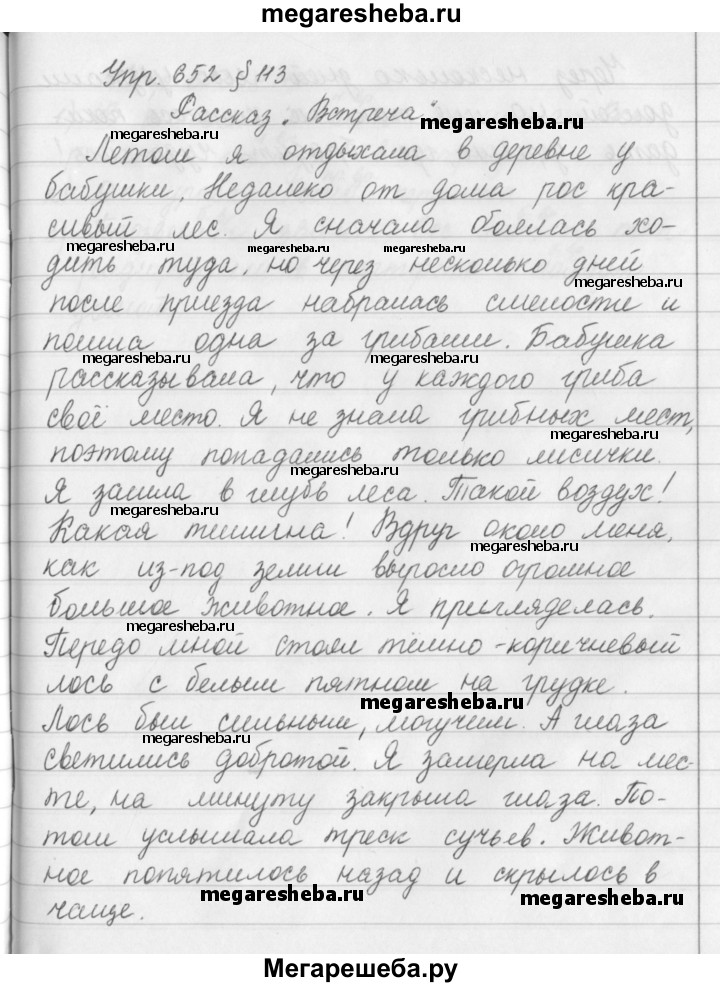 megaresheba.ru
Упр. 652 § 113
Рассказ „Встреча".
megaresheba.ru
megaresheba.ru
Летом я отдыхала в деревне у
бабушки. Недалеко от дома рос кра-
megaresheba.ru
сивый лес. Я сначала боялась хо-
megaresheba.ru megaresheba.ru megaresheba.ru
дить туда, но через несколько дней
после приезда набралась смелости и
пошла одна за грибами. Бабушка
megaresheba.ru megaresheba.ru
рассказывала, что у каждого гриба
своё место. Я не знала грибных мест,
megaresheba.ru
поэтому попадались только лисички.
megaresheba.ru
Я зашла в глубь леса. Такой воздух!
megaresheba.ru
Какая тишина! Вдруг около меня,
megaresheba.ru
как из-под земли выросло огромное
большое животное. Я пригляделась.
megaresheba.ru
Передо мной стоял темно-коричневый
megaresheba.ru
лось с белым пятном на грудке.
megaresheba.ru
Лось был сильным, могучим. А глаза
megaresheba.ru
светились добротой. Я замерла на мес-
те, на минуту закрыла глаза. По-
том услышала треск сучьев. Живот-
ное попятилось назад и скрылось в
megaresheba.ru megaresheba.ru
чаще.
Мегарешеба.ру